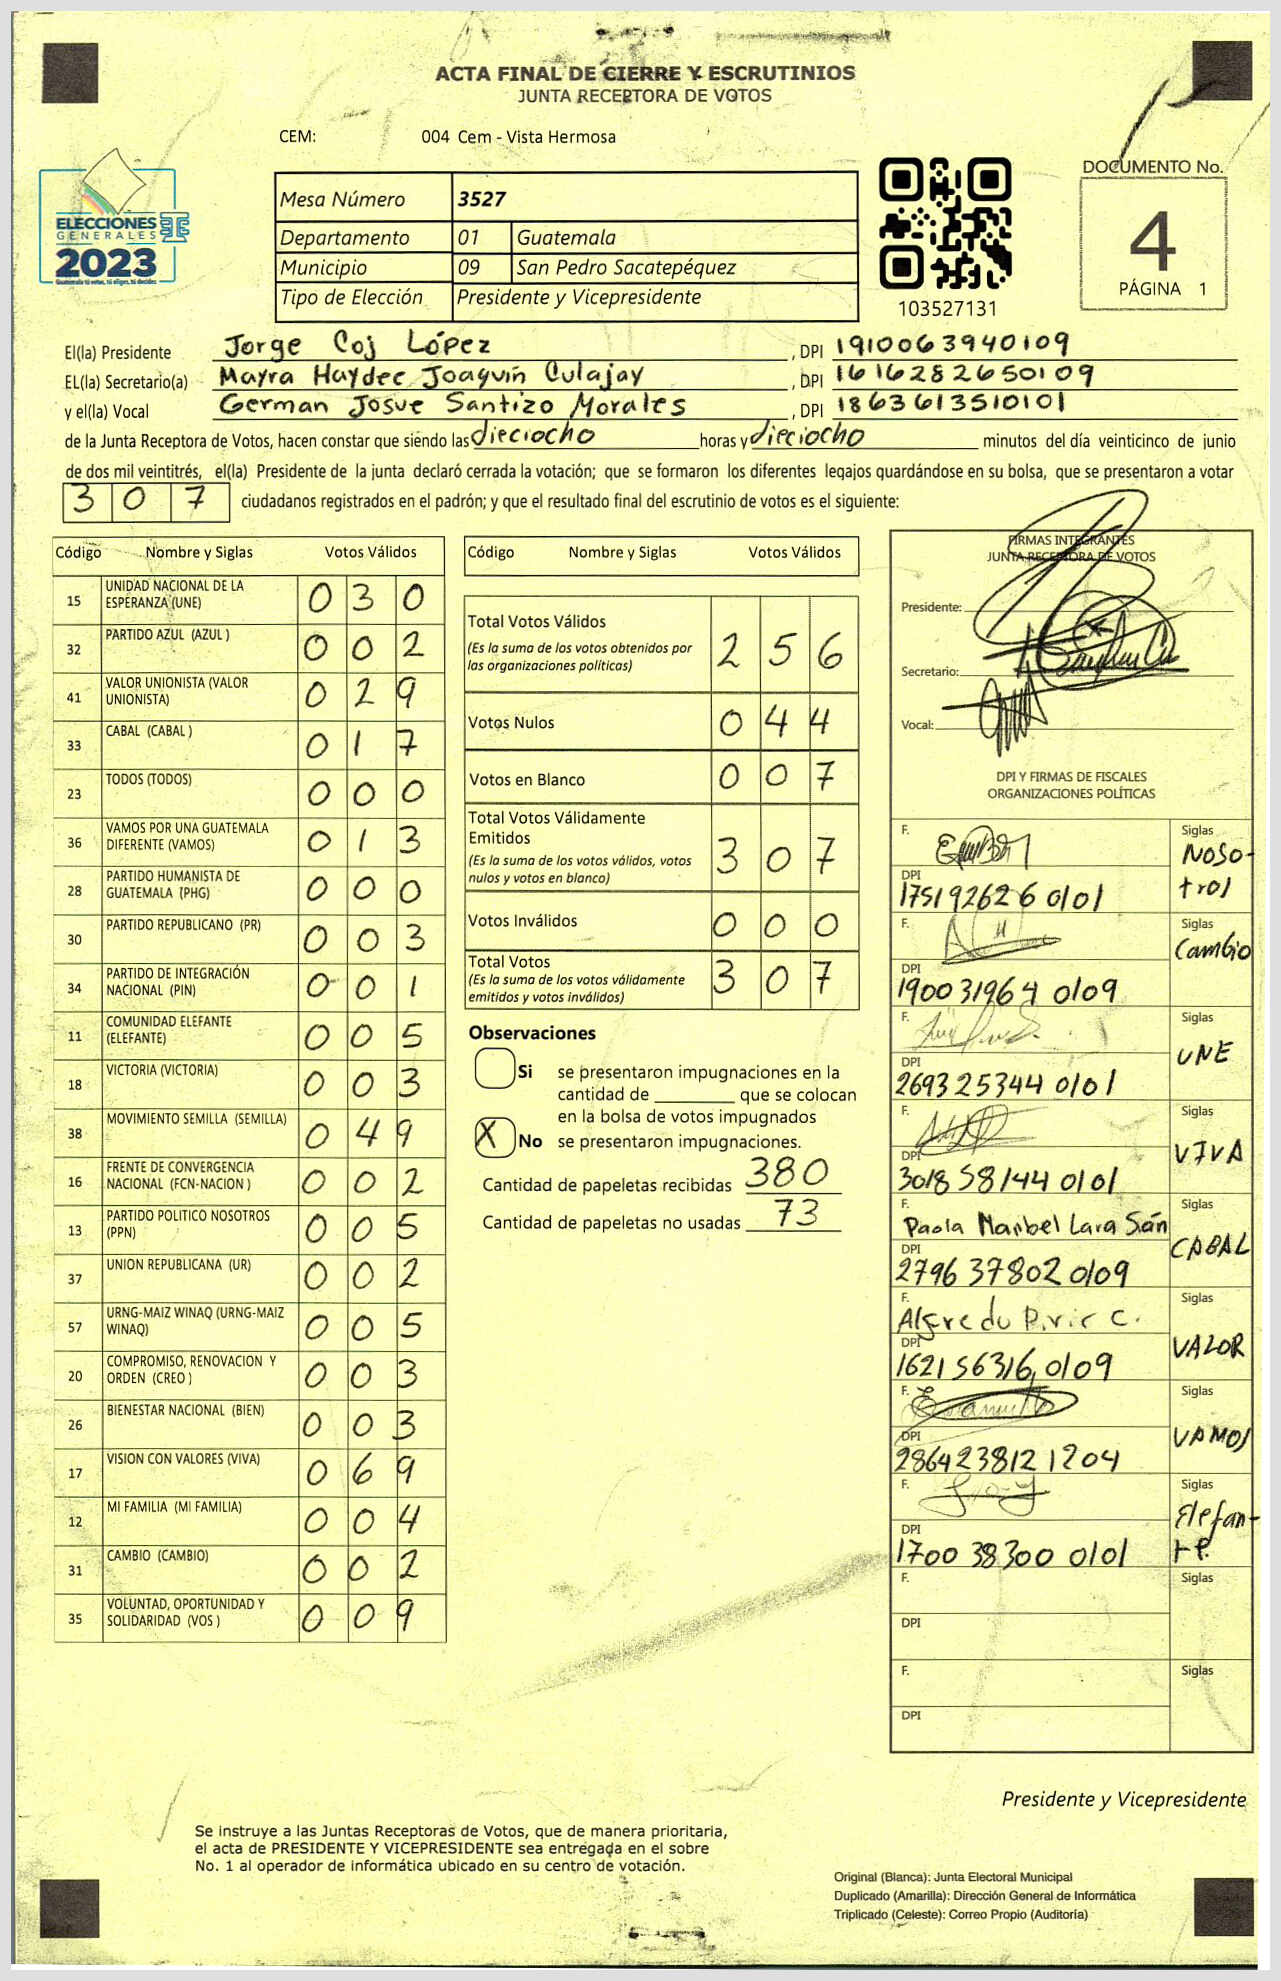 ACTA FINAL DE CIERRE Y ESCRUTINIOS
JUNTA RECEPTORA DE VOTOS
CEM: 004 Cem - Vista Hermosa
DOCUMENTO No.
4
PÁGINA 1
ELECCIONES
GENERALES
2023
Guatemala tú votas, tú eliges, tú decides
TSE
Mesa Número 3527
Departamento 01 Guatemala
Municipio 09 San Pedro Sacatepéquez
Tipo de Elección Presidente y Vicepresidente
103527131
El(la) Presidente Jorge Coj López , DPI 1910063940109
EL(la) Secretario(a) Mayra Haydee Joaquín Culajay , DPI 1616282650109
y el(la) Vocal German Josue Santizo Morales , DPI 1863613510101
de la Junta Receptora de Votos, hacen constar que siendo las dieciocho horas y dieciocho minutos del día veinticinco de junio
de dos mil veintitrés, el(la) Presidente de la junta declaró cerrada la votación; que se formaron los diferentes legajos quardándose en su bolsa, que se presentaron a votar
307 ciudadanos registrados en el padrón; y que el resultado final del escrutinio de votos es el siguiente:
Código Nombre y Siglas Votos Válidos
15 UNIDAD NACIONAL DE LA ESPERANZA (UNE) 030
32 PARTIDO AZUL (AZUL ) 002
41 VALOR UNIONISTA (VALOR UNIONISTA) 029
33 CABAL (CABAL ) 017
23 TODOS (TODOS) 000
36 VAMOS POR UNA GUATEMALA DIFERENTE (VAMOS) 013
28 PARTIDO HUMANISTA DE GUATEMALA (PHG) 000
30 PARTIDO REPUBLICANO (PR) 003
34 PARTIDO DE INTEGRACIÓN NACIONAL (PIN) 001
11 COMUNIDAD ELEFANTE (ELEFANTE) 005
18 VICTORIA (VICTORIA) 003
38 MOVIMIENTO SEMILLA (SEMILLA) 049
16 FRENTE DE CONVERGENCIA NACIONAL (FCN-NACION ) 002
13 PARTIDO POLITICO NOSOTROS (PPN) 005
37 UNION REPUBLICANA (UR) 002
57 URNG-MAIZ WINAQ (URNG-MAIZ WINAQ) 005
20 COMPROMISO, RENOVACION Y ORDEN (CREO ) 003
26 BIENESTAR NACIONAL (BIEN) 003
17 VISION CON VALORES (VIVA) 069
12 MI FAMILIA (MI FAMILIA) 004
31 CAMBIO (CAMBIO) 002
35 VOLUNTAD, OPORTUNIDAD Y SOLIDARIDAD (VOS ) 009
Código Nombre y Siglas Votos Válidos
Total Votos Válidos 256
(Es la suma de los votos obtenidos por
las organizaciones políticas)
Votos Nulos 044
Votos en Blanco 007
Total Votos Válidamente
Emitidos 307
(Es la suma de los votos válidos, votos
nulos y votos en blanco)
Votos Inválidos 000
Total Votos 307
(Es la suma de los votos válidamente
emitidos y votos inválidos)
Observaciones
Si se presentaron impugnaciones en la
cantidad de ________ que se colocan
en la bolsa de votos impugnados
X No se presentaron impugnaciones.
Cantidad de papeletas recibidas 380
Cantidad de papeletas no usadas 73
FIRMAS INTEGRANTES
JUNTA RECEPTORA DE VOTOS
Presidente:
Secretario:
Vocal:
DPI Y FIRMAS DE FISCALES
ORGANIZACIONES POLÍTICAS
F. Siglas Noso-
trol
DPI 175192626 0101
F. Siglas Cambio
DPI 190031964 0109
F. Siglas UNE
DPI 269325344 0101
F. Siglas VIVA
DPI 301858144 0101
F. Paola Maribel Lara Sán Siglas CABAL
DPI 279637802 0109
F. Alfredo Pirir C. Siglas VALOR
DPI 162156316 0109
F. Siglas VAMOS
DPI 286423812 1204
F. Siglas Elefan-
te.
DPI 170038300 0101
F. Siglas
DPI
F. Siglas
DPI
Presidente y Vicepresidente
Se instruye a las Juntas Receptoras de Votos, que de manera prioritaria,
el acta de PRESIDENTE Y VICEPRESIDENTE sea entregada en el sobre
No. 1 al operador de informática ubicado en su centro de votación.
Original (Blanca): Junta Electoral Municipal
Duplicado (Amarilla): Dirección General de Informática
Triplicado (Celeste): Correo Propio (Auditoría)